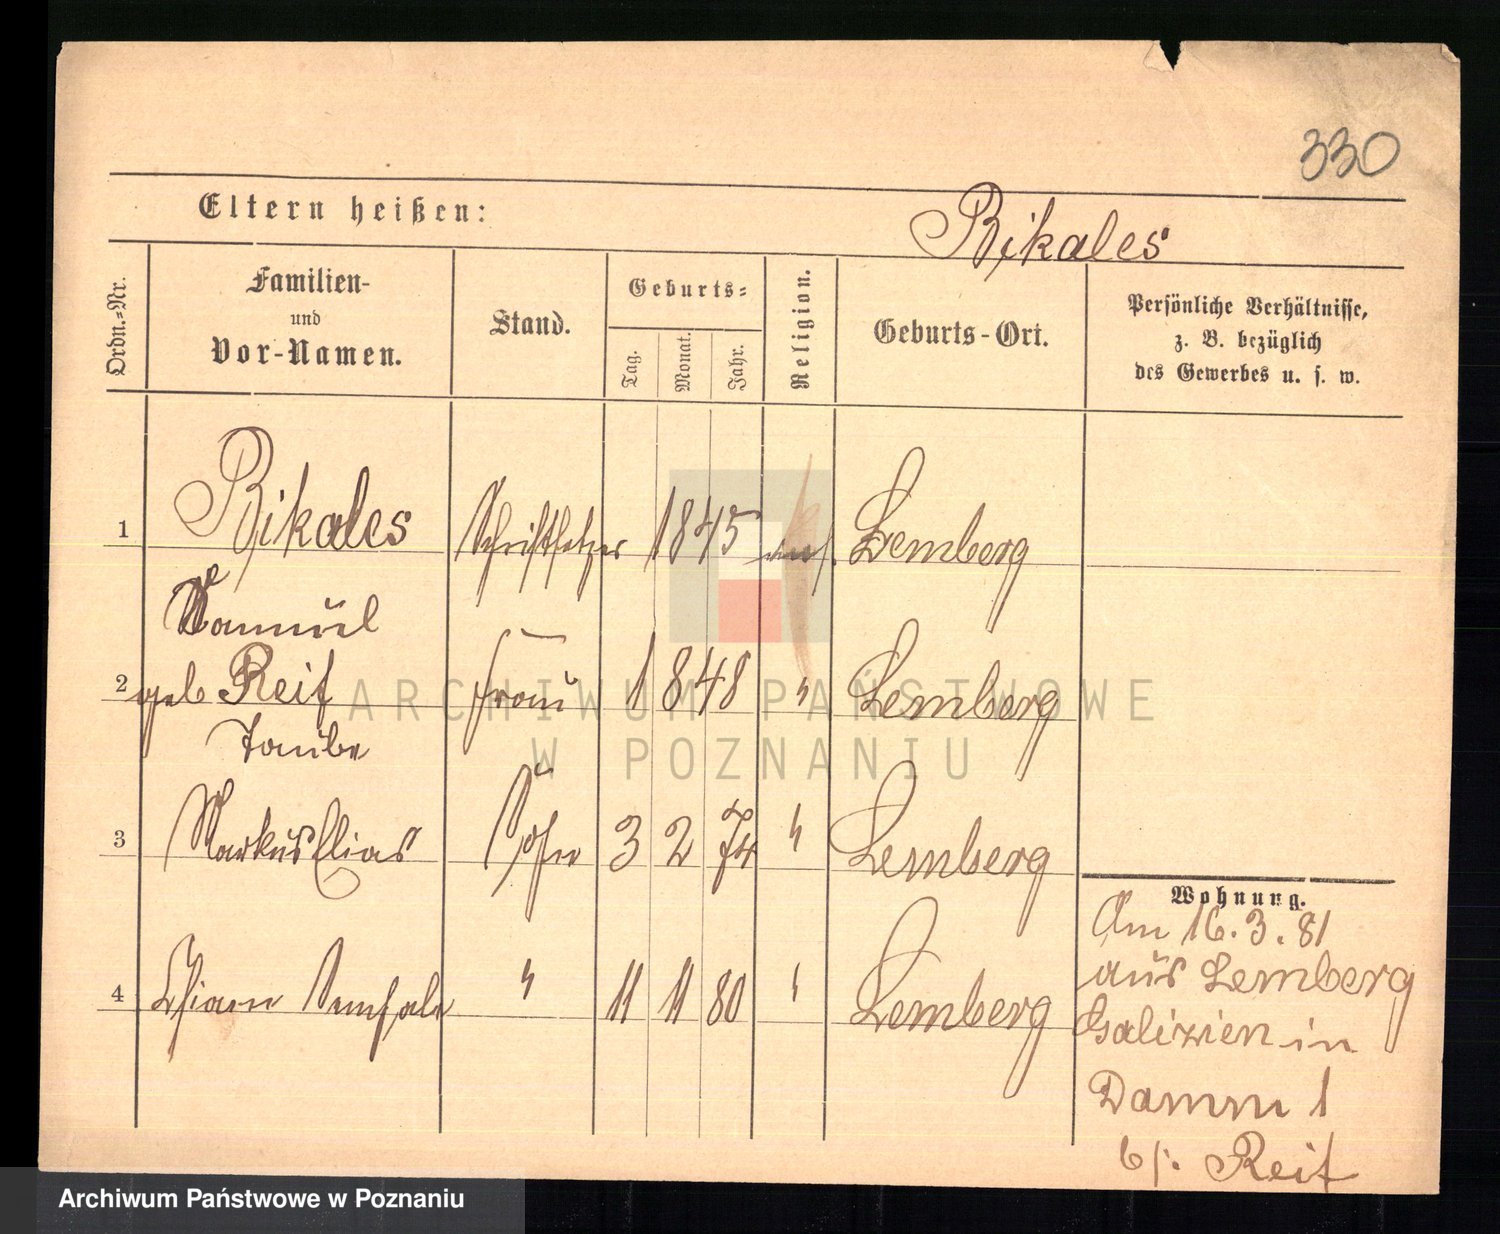 330
Eltern heißen:
Rikales
Ordn.-Nr.
Familien-
und
Vor-Namen.
Stand.
Geburts-
Tag.
Monat.
Jahr.
Religion.
Geburts-Ort.
Persönliche Verhältnisse,
z. B. bezüglich
des Gewerbes u. s. w.
1 Rikales Schriftsetzer 1845 mos. Lemberg
Samuel
2 geb Reif Frau 1848 " Lemberg
Taube
3 Markus Elias Sohn 3 2 74 " Lemberg
4 " 11 11 80 " Lemberg
Wohnung.
Am 16.3.81
aus Lemberg
Galizien in
Damm 1
b/. Reif
ARCHIWUM PAŃSTWOWE
W POZNANIU
Archiwum Państwowe w Poznaniu